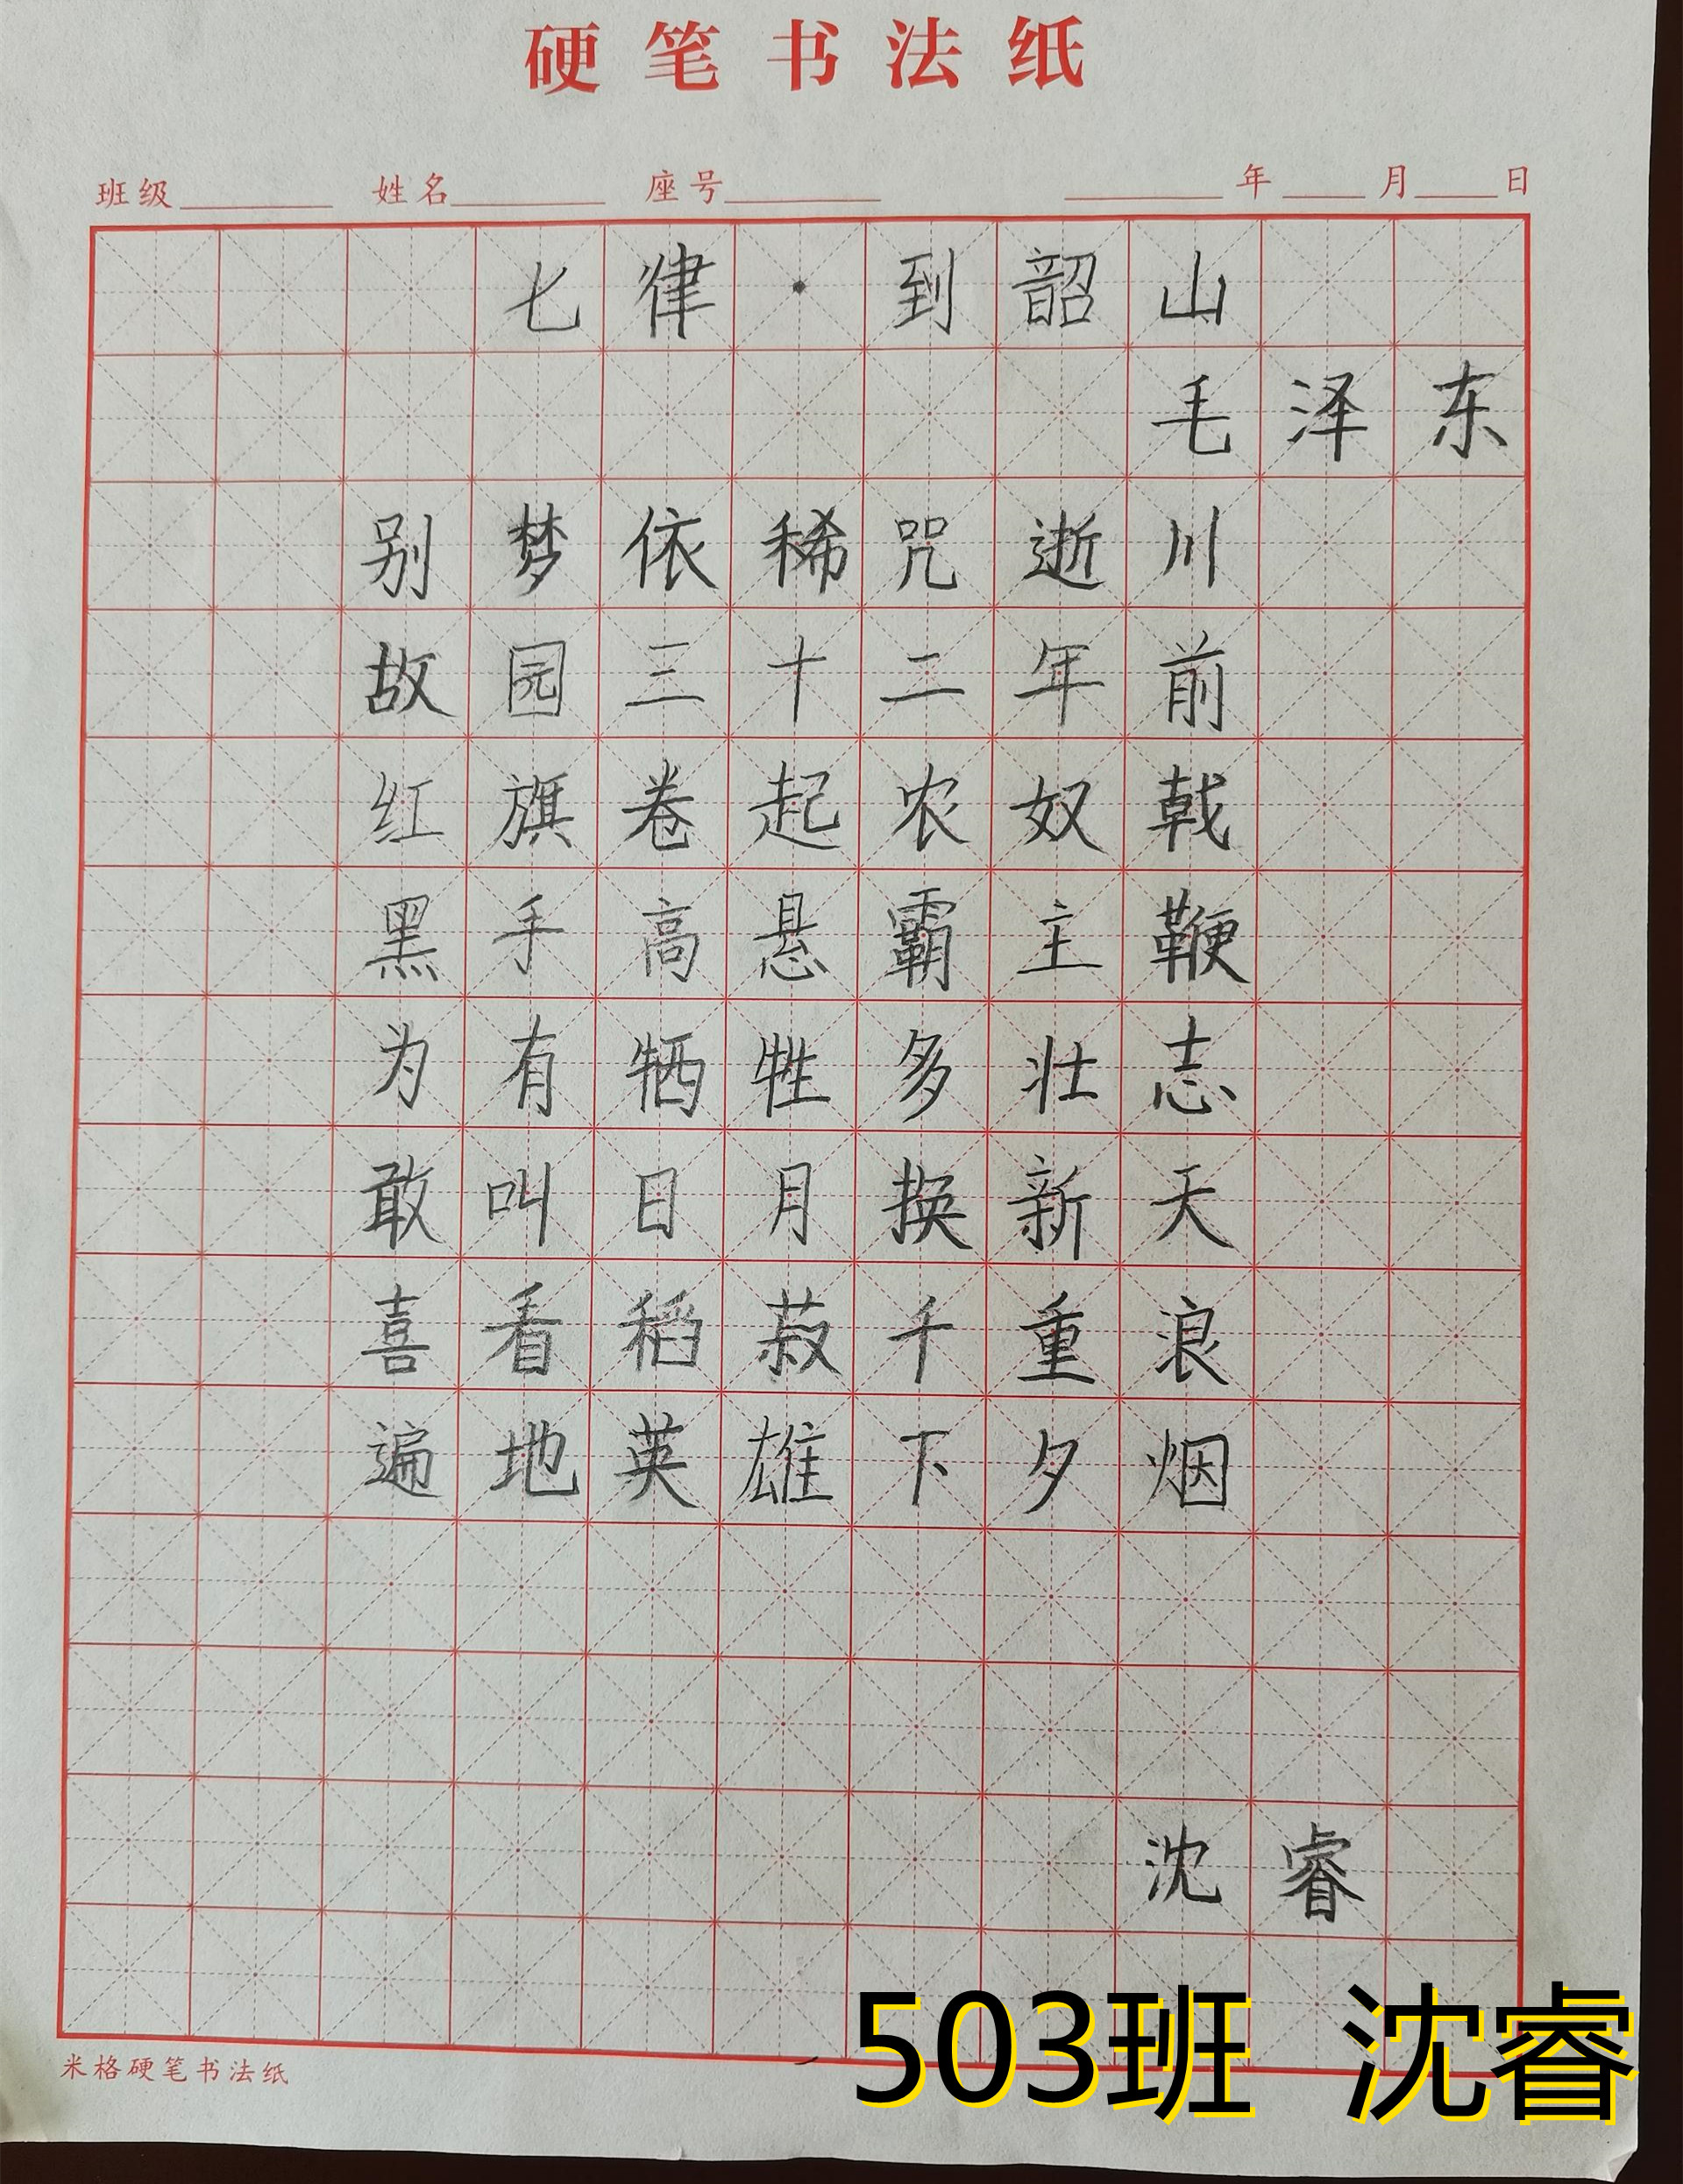 硬笔书法纸
班级 姓名 座号 年 月 日
七律·到韶山
毛泽东
别梦依稀咒逝川
故园三十二年前
红旗卷起农奴戟
黑手高悬霸主鞭
为有牺牲多壮志
敢叫日月换新天
喜看稻菽千重浪
遍地英雄下夕烟
沈睿
503班 沈睿
米格硬笔书法纸